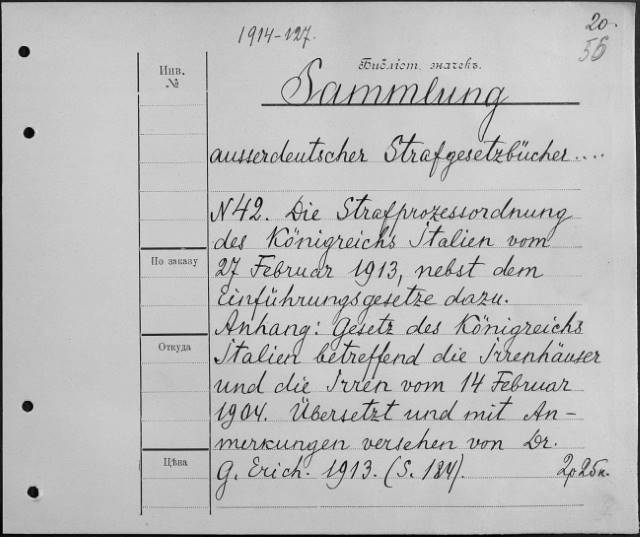 1914-127.
20.
56
Библіот. значекъ.
Инв.
№
Sammlung
ausserdeutscher Strafgesetzbücher....
N 42. Die Strafprozessordnung
des Königreichs Italien vom
По заказу
27 Februar 1913, nebst dem
Einführungsgesetze dazu.
Anhang: Gesetz des Königreichs
Откуда
Italien betreffend die Irrenhäuser
und die Irren vom 14 Februar
1904. Übersetzt und mit An-
merkungen versehen von Dr.
Цѣна
G. Erich. 1913. (S. 184). 2р 25к.